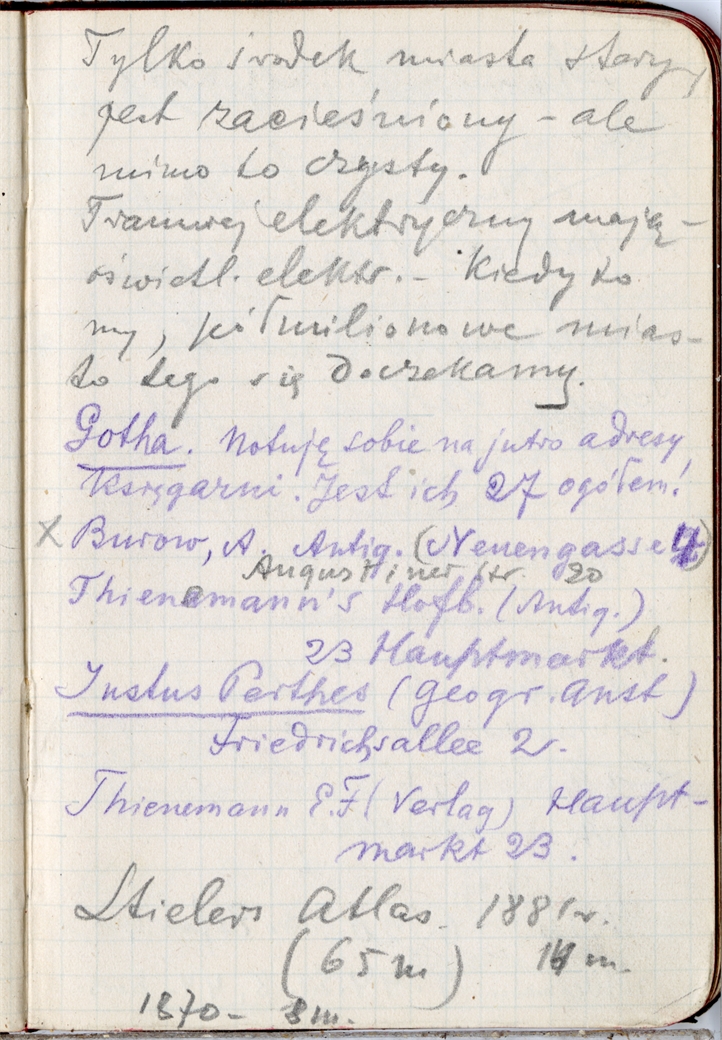 Tylko środek miasta stary,
jest zacieśniony – ale
mimo to czysty.
Tramwaj elektryczny mają –
oświetl. elektr. – Kiedy to
my, półmilionowe mias-
to tego się doczekamy.
Gotha. Notuję sobie na jutro adresy
księgarni. Jest ich 27 ogółem!
X Burow, A. Antiq. (Neuengasse 4)
Augustiner str. 20
Thienemann's Hofb. (Antiq.)
23 Hauptmarkt.
Justus Perthes (Geogr. Anst)
Friedrichsallee 2.
Thienemann E.F. (Verlag) Haupt-
markt 23.
Stielers Atlas. 1881 r.
(65 m) m.
1870 – 8 m.